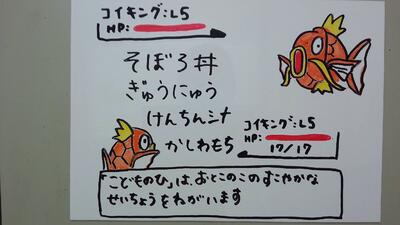 コイキング:L5
HP:
そぼろ丼
ぎゅうにゅう
けんちん汁
かしわもち
コイキング:L5
HP:
17/17
「こどものひ」は、おとこのこのすこやかな
せいちょうをねがいます